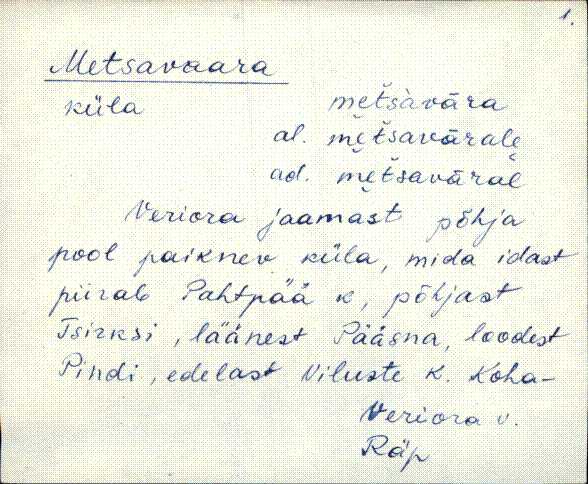 1.
Metsavaara
küla metsàvāra
al. metsavārale
ad. metsavāral
Veriora jaamast põhja
pool paiknev küla, mida idast
piirab Pahtpää k, põhjast
Tsirksi, läänest Pääsna, loodest
Pindi, edelast Viluste k. Koha-
Veriora v.
Räp